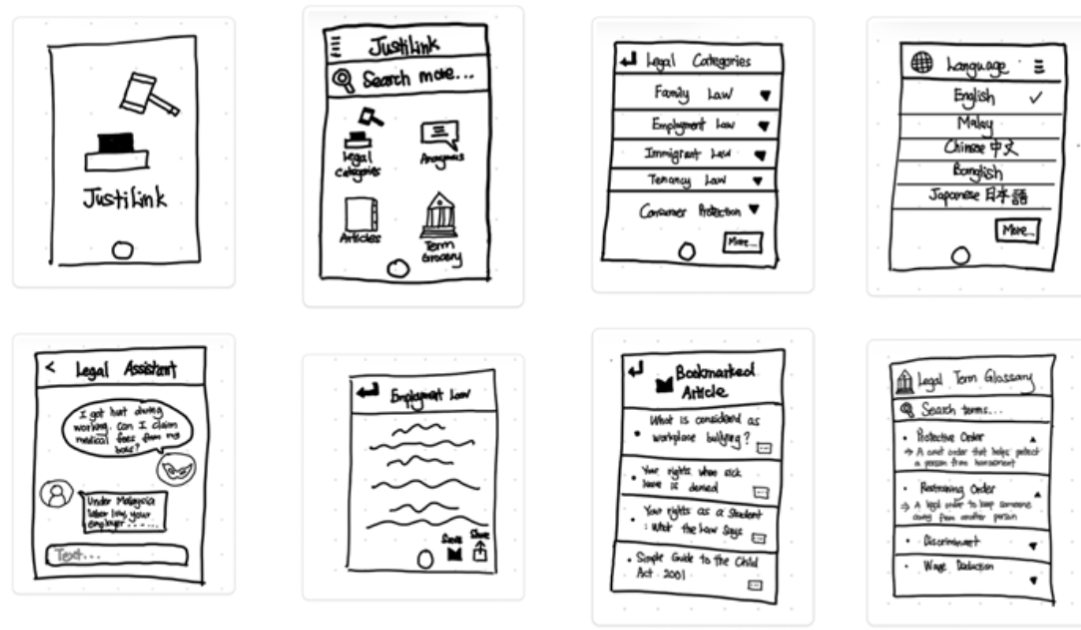 JustiLink
JustiLink
Search more...
Legal
Categories
Articles
Term
Grocery
Legal Categories
Family Law
Employment Law
Immigrant Law
Tenancy Law
Consumer Protection
More...
Language
English
Malay
Chinese 中文
Banglish
Japanese 日本語
More...
Legal Assistant
I got hurt during
working. Can I claim
medical fees from my
boss?
Under Malaysia
labor law, your
employer ......
Text...
Employment Law
Save
Share
Bookmarked
Article
What is considered as
workplace bullying?
Your rights when sick
leave is denied
Your rights as a Student
: What the Law Says
Simple Guide to the Child
Act 2001
Legal Term Glossary
Search terms...
Protective Order
→ A court order that helps protect
a person from harassment
Restraining Order
→ A legal order to keep someone
away from another person
Wage Deduction